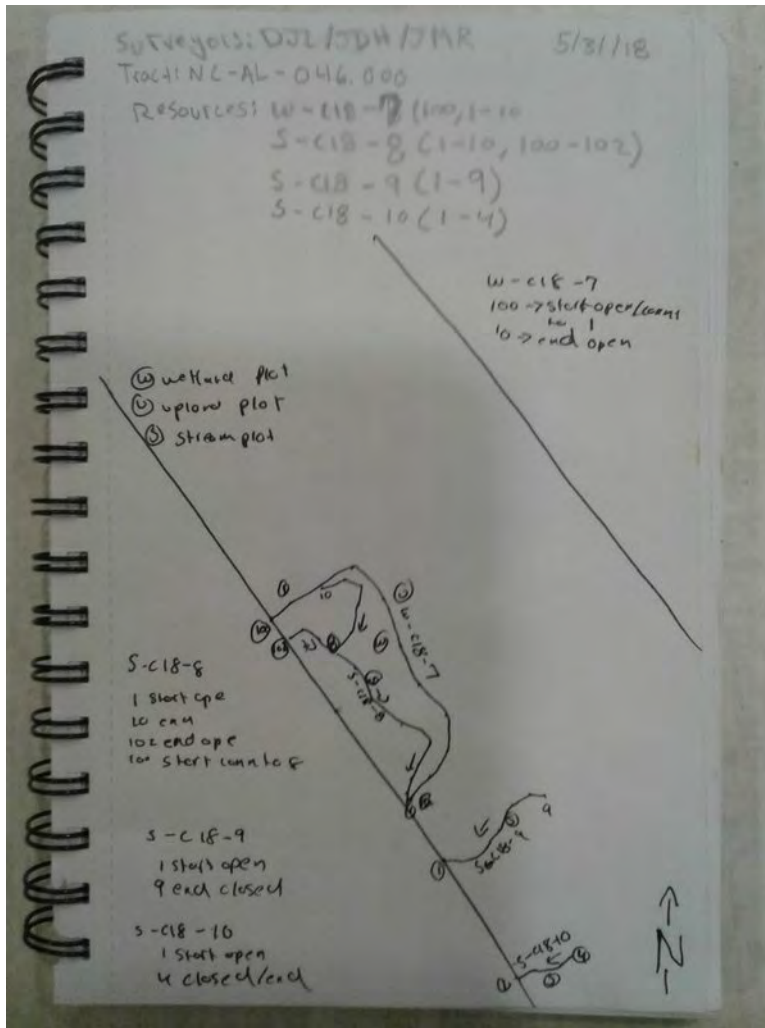 Surveyors: DJL/JDH/JMR 5/31/18
Tract: NC-AL-046.000
Resources: W-C18-7 (100, 1-10
S-C18-8 (1-10, 100-102)
S-C18-9 (1-9)
S-C18-10 (1-4)
W-C18-7
100 -> start open/conn
10 -> end open
W wetland plot
U upland plot
S stream plot
10
W-C18-7
S-C18-8
S-C18-8
1 start ope
10 end
102 end ope
100 start conn to 8
9
S-C18-9
1
S-C18-9
1 start open
9 end closed
S-C18-10
1 start open
4 closed/end
S-C18-10
N